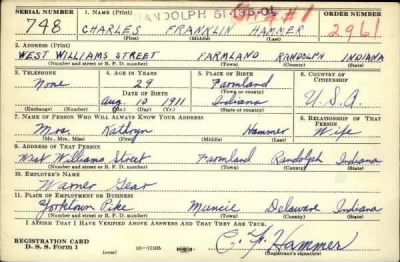 SERIAL NUMBER 1. NAME (Print) RANDOLPH ORDER NUMBER
748 CHARLES FRANKLIN HAMMER 2961
(First) (Middle) (Last)
2. ADDRESS (Print)
WEST WILLIAMS STREET FARMLAND RANDOLPH INDIANA
(Number and street or R. F. D. number) (Town) (County) (State)
3. TELEPHONE 4. AGE IN YEARS 5. PLACE OF BIRTH 6. COUNTRY OF CITIZENSHIP
None 29 Farmland
DATE OF BIRTH (Town or county)
Aug. 10 1911 Indiana U.S.A.
(Exchange) (Number) (Mo.) (Day) (Yr.) (State or country)
7. NAME OF PERSON WHO WILL ALWAYS KNOW YOUR ADDRESS 8. RELATIONSHIP OF THAT PERSON
Mrs. Kathryn Hammer Wife
(Mr., Mrs., Miss) (First) (Middle) (Last)
9. ADDRESS OF THAT PERSON
West Williams Street Farmland Randolph Indiana
(Number and street or R. F. D. number) (Town) (County) (State)
10. EMPLOYER'S NAME
Warner Gear
11. PLACE OF EMPLOYMENT OR BUSINESS
Yorktown Pike Muncie Delaware Indiana
(Number and street or R. F. D. number) (Town) (County) (State)
I AFFIRM THAT I HAVE VERIFIED ABOVE ANSWERS AND THAT THEY ARE TRUE.
REGISTRATION CARD
D. S. S. Form 1 (over) C. F. Hammer
(Registrant's signature)